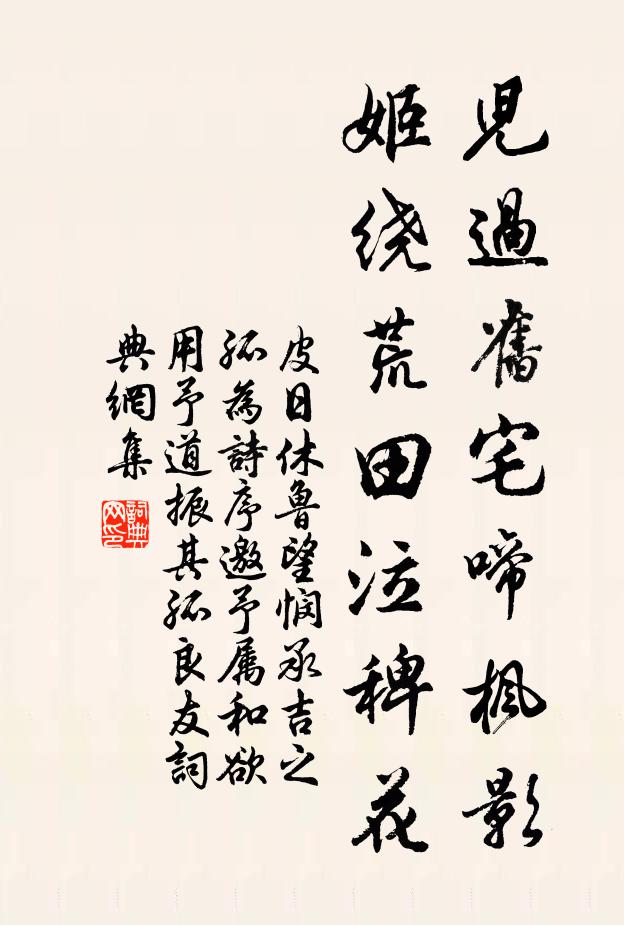 児過舊宅啼楓影
姬绕荒田泣稗花
皮日休魯望悯承吉之
孤為詩序邀予属和欲
用予道振其孤良友詞
典網集
詞典網印